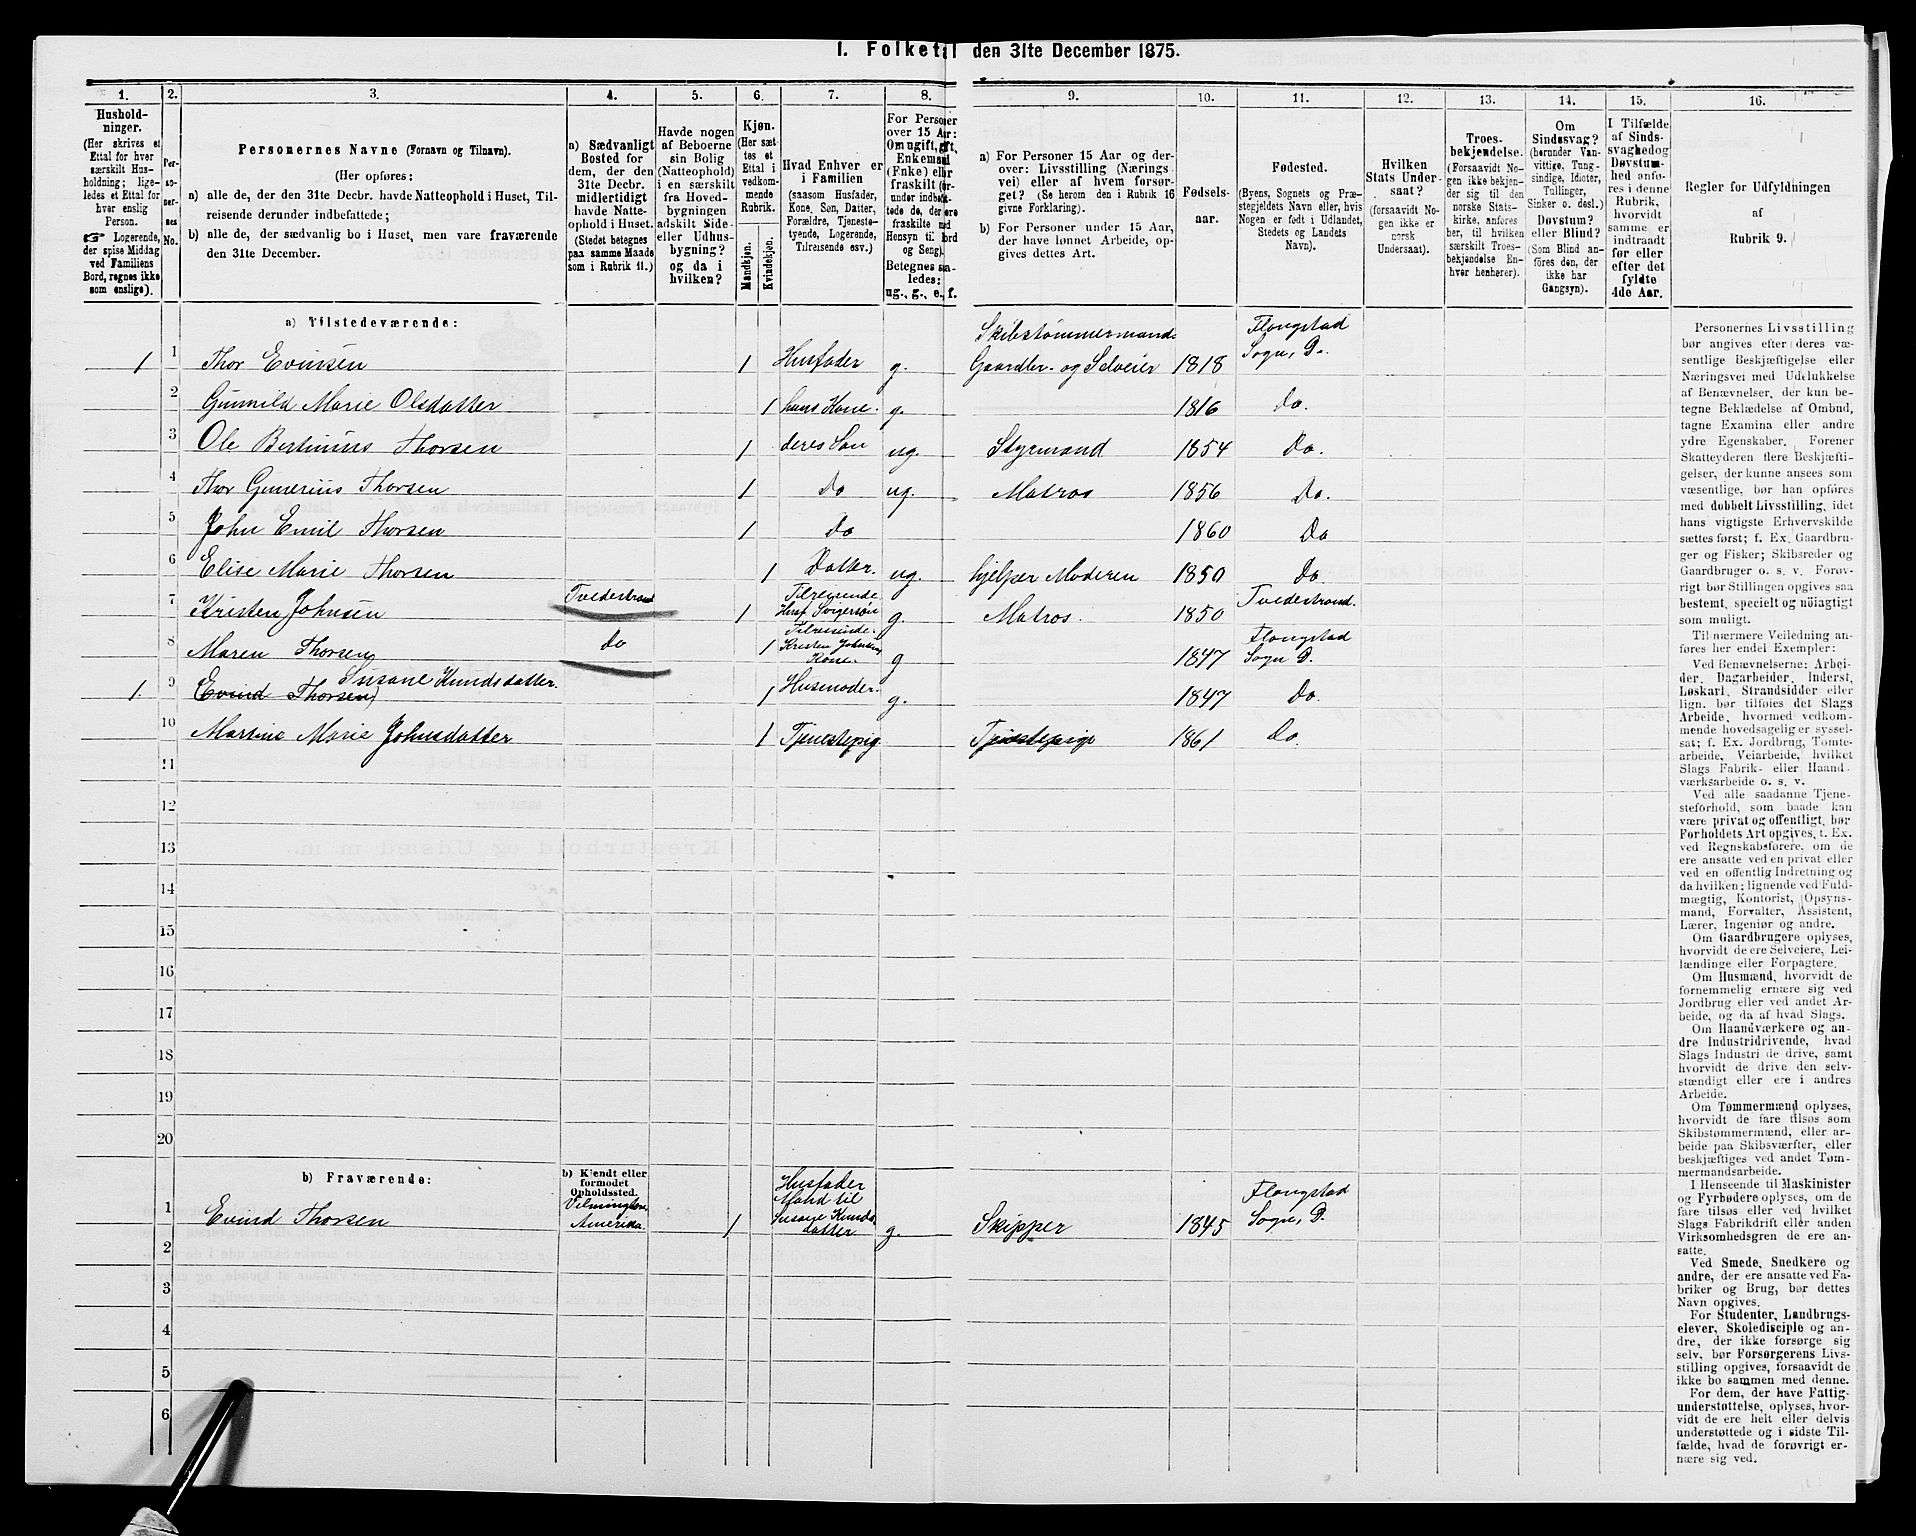 1. Folketal den 31te December 1875.
1. 2. 3. 4. 5. 6. 7. 8. 9. 10. 11. 12. 13. 14. 15. 16.
Hushold-
ninger.
(Her skrives et
Ettal for hver
særskilt Hus-
holdning; lige-
ledes et Ettal for
hver enslig
Person.
☞ Logerende,
der spise Middag
ved Familiens
Bord, regnes ikke
som enslige).
Per-
so-
ner-
nes
No.
Personernes Navne (Fornavn og Tilnavn).
(Her opføres:
a) alle de, der den 31te Decbr. havde Natteophold i Huset, Til-
reisende derunder indbefattede;
b) alle de, der sædvanlig bo i Huset, men vare fraværende
den 31te December.
a) Sædvanligt
Bosted for
dem, der den
31te Decbr.
midlertidigt
havde Natte-
ophold i Huset.
(Stedet betegnes
paa samme Maade
som i Rubrik 11.)
Havde nogen
af Beboerne
sin Bolig
(Natteophold)
i en særskilt
fra Hoved-
bygningen
adskilt Side-
eller Udhus-
bygning?
og da i
hvilken?
Kjøn.
(Her sæt-
tes et
Ettal i
vedkom-
mende
Rubrik.
Mandkjøn.
Kvindekjøn.
Hvad Enhver er
i Familien
(saasom Husfader,
Kone, Søn, Datter,
Forældre, Tjeneste-
tyende, Logerende,
Tilreisende osv.)
For Personer
over 15 Aar:
Om ugift, gift,
Enkemand
(Enke) eller
fraskilt (her-
under indbefat-
tede de, der ere
fraskilte med
Hensyn til Bord
og Seng).
Betegnes saa-
ledes:
ug., g., e., f.
a) For Personer 15 Aar og der-
over: Livsstilling (Nærings-
vei) eller af hvem forsør-
get? (Se herom den i Rubrik 16
givne Forklaring).
b) For Personer under 15 Aar,
der have lønnet Arbeide, op-
gives dettes Art.
Fødsels-
aar.
Fødested.
(Byens, Sognets og Præ-
stegjeldets Navn eller, hvis
Nogen er født i Udlandet,
Stedets og Landets
Navn).
Hvilken
Stats Under-
saat?
(forsaavidt No-
gen ikke er
norsk
Undersaat).
Troes-
bekjendelse.
(Forsaavidt No-
gen ikke bekjen-
der sig til den
norske Stats-
kirke, anføres
her, til hvilken
særskilt Troes-
bekjendelse En-
hver henhører).
Om
Sindssvag?
(herunder Van-
vittige, Tung-
sindige, Idioter,
Tullinger,
Sinker o. desl.)
Døvstum?
eller Blind?
(Som Blind an-
føres den, der
ikke har
Gangsyn).
I Tilfælde
af Sinds-
svaghed og
Døvstum-
hed anfø-
res i denne
Rubrik,
hvorvidt
samme er
indtraadt
før eller
efter det
fyldte
4de Aar.
Regler for Udfyldningen
af
Rubrik 9.
a) Tilstedeværende:
1 1 Thor Evinsen 1 Husfader g. Skibstømmermand Gaardbr. og Selveier 1818 Flongstad Sogn, D.
2 Gunnild Marie Olsdatter 1 hans Kone g. 1816 Do.
3 Ole Bertinius Thorsen 1 deres Søn ug. Styrmand 1854 Do.
4 Thor Gunerius Thorsen 1 Do ug. Matros 1856 Do.
5 John Emil Thorsen 1 Do 1860 Do
6 Elise Marie Thorsen 1 Datter. ug. hjelper Moderen 1850 Do
7 Kristen Johnsen Tvedestrand 1 Tilreisende g. Matros. 1850 Tvedestrand.
8 Maren Thorsen Do 1 Tilreisende Kristen Johnsens Kone g 1847 Flongstad Sogn D.
1. 9 Susane Knudsdatter. (Evind Thorsen) 1 Husmoder g. 1847 Do.
10 Martine Marie Johnsdatter 1 Tjenestepig Tjenestepige 1861 Do.
11
12
13
14
15
16
17
18
19
20
b) Fraværende:
b) Kjendt eller
formodet
Opholdssted.
1 Evind Thorsen Vilmington Amerika. 1 Husfader Mand til Susane Knudsdatter g. Skipper 1845 Flongstad Sogn, D.
2
3
4
5
6
Personernes Livsstilling
bør angives efter deres væ-
sentlige Beskjæftigelse eller
Næringsvei med Udelukkelse
af Benævnelser, der kun be-
tegne Beklædelse af Ombud,
tagne Examina eller andre
ydre Egenskaber. Forener
Skatteyderen flere Beskjæfti-
gelser, der kunne ansees som
væsentlige, bør han opføres
med dobbelt Livsstilling, idet
hans vigtigste Erhvervskilde
sættes først; f. Ex. Gaardbru-
ger og Fisker; Skibsreder og
Gaardbruger o. s. v. Forøv-
rigt bør Stillingen opgives saa
bestemt, specielt og nøiagtigt
som muligt.
Til nærmere Veiledning an-
føres her endel Exempler:
Ved Benævnelserne: Arbei-
der, Dagarbeider, Inderst,
Løskarl, Strandsidder eller
lign. bør tilføies det Slags
Arbeide, hvormed vedkom-
mende hovedsagelig er syssel-
sat; f. Ex. Jordbrug, Tomte-
arbeide, Veiarbeide, hvilket
Slags Fabrik- eller Haand-
værksarbeide o. s. v.
Ved alle saadanne Tjene-
steforhold, som baade kan
være privat og offentligt, bør
Forholdets Art opgives, t. Ex.
ved Regnskabsførere, om de
ere ansatte ved en privat eller
ved en offentlig Indretning og
da hvilken; lignende ved Fuld-
mægtig, Kontorist, Opsyns-
mand, Forvalter, Assistent,
Lærer, Ingeniør og andre.
Om Gaardbrugere oplyses,
hvorvidt de ere Selveiere, Lei-
lændinge eller Forpagtere.
Om Husmænd, hvorvidt de
fornemmelig ernære sig ved
Jordbrug eller ved andet Ar-
beide, og da af hvad Slags.
Om Haandværkere og an-
dre Industridrivende, hvad
Slags Industri de drive, samt
hvorvidt de drive den selv-
stændigt eller ere i andres
Arbeide.
Om Tømmermænd oplyses,
hvorvidt de fare tilsøs som
Skibstømmermænd, eller ar-
beide paa Skibsværfter, eller
beskjæftiges ved andet Tøm-
mermandsarbeide.
I Henseende til Maskinister
og Fyrbødere oplyses, om de
fare tilsøs eller ved hvilket
Slags Fabrikdrift eller anden
Virksomhedsgren de ere an-
satte.
Ved Smede, Snedkere og
andre, der ere ansatte ved Fa-
briker og Brug, bør dettes
Navn opgives.
For Studenter, Landbrugs-
elever, Skoledisciple og an-
dre, der ikke forsørge sig
selv, bør Forsørgerens Livs-
stilling opgives, forsaavidt de
ikke bo sammen med denne.
For dem, der have Fattig-
understøttelse, oplyses, hvor-
vidt de ere helt eller delvis
understøttede og i sidste Til-
fælde, hvad de forøvrigt er-
nære sig ved.